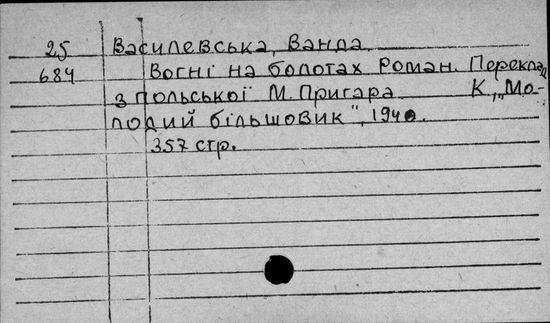 25 Василевська, Ванда.
684 Вогні на болотах роман. Переклад
з польської М. Пригара К., „Мо-
лодий більшовик", 1940.
357 стр.